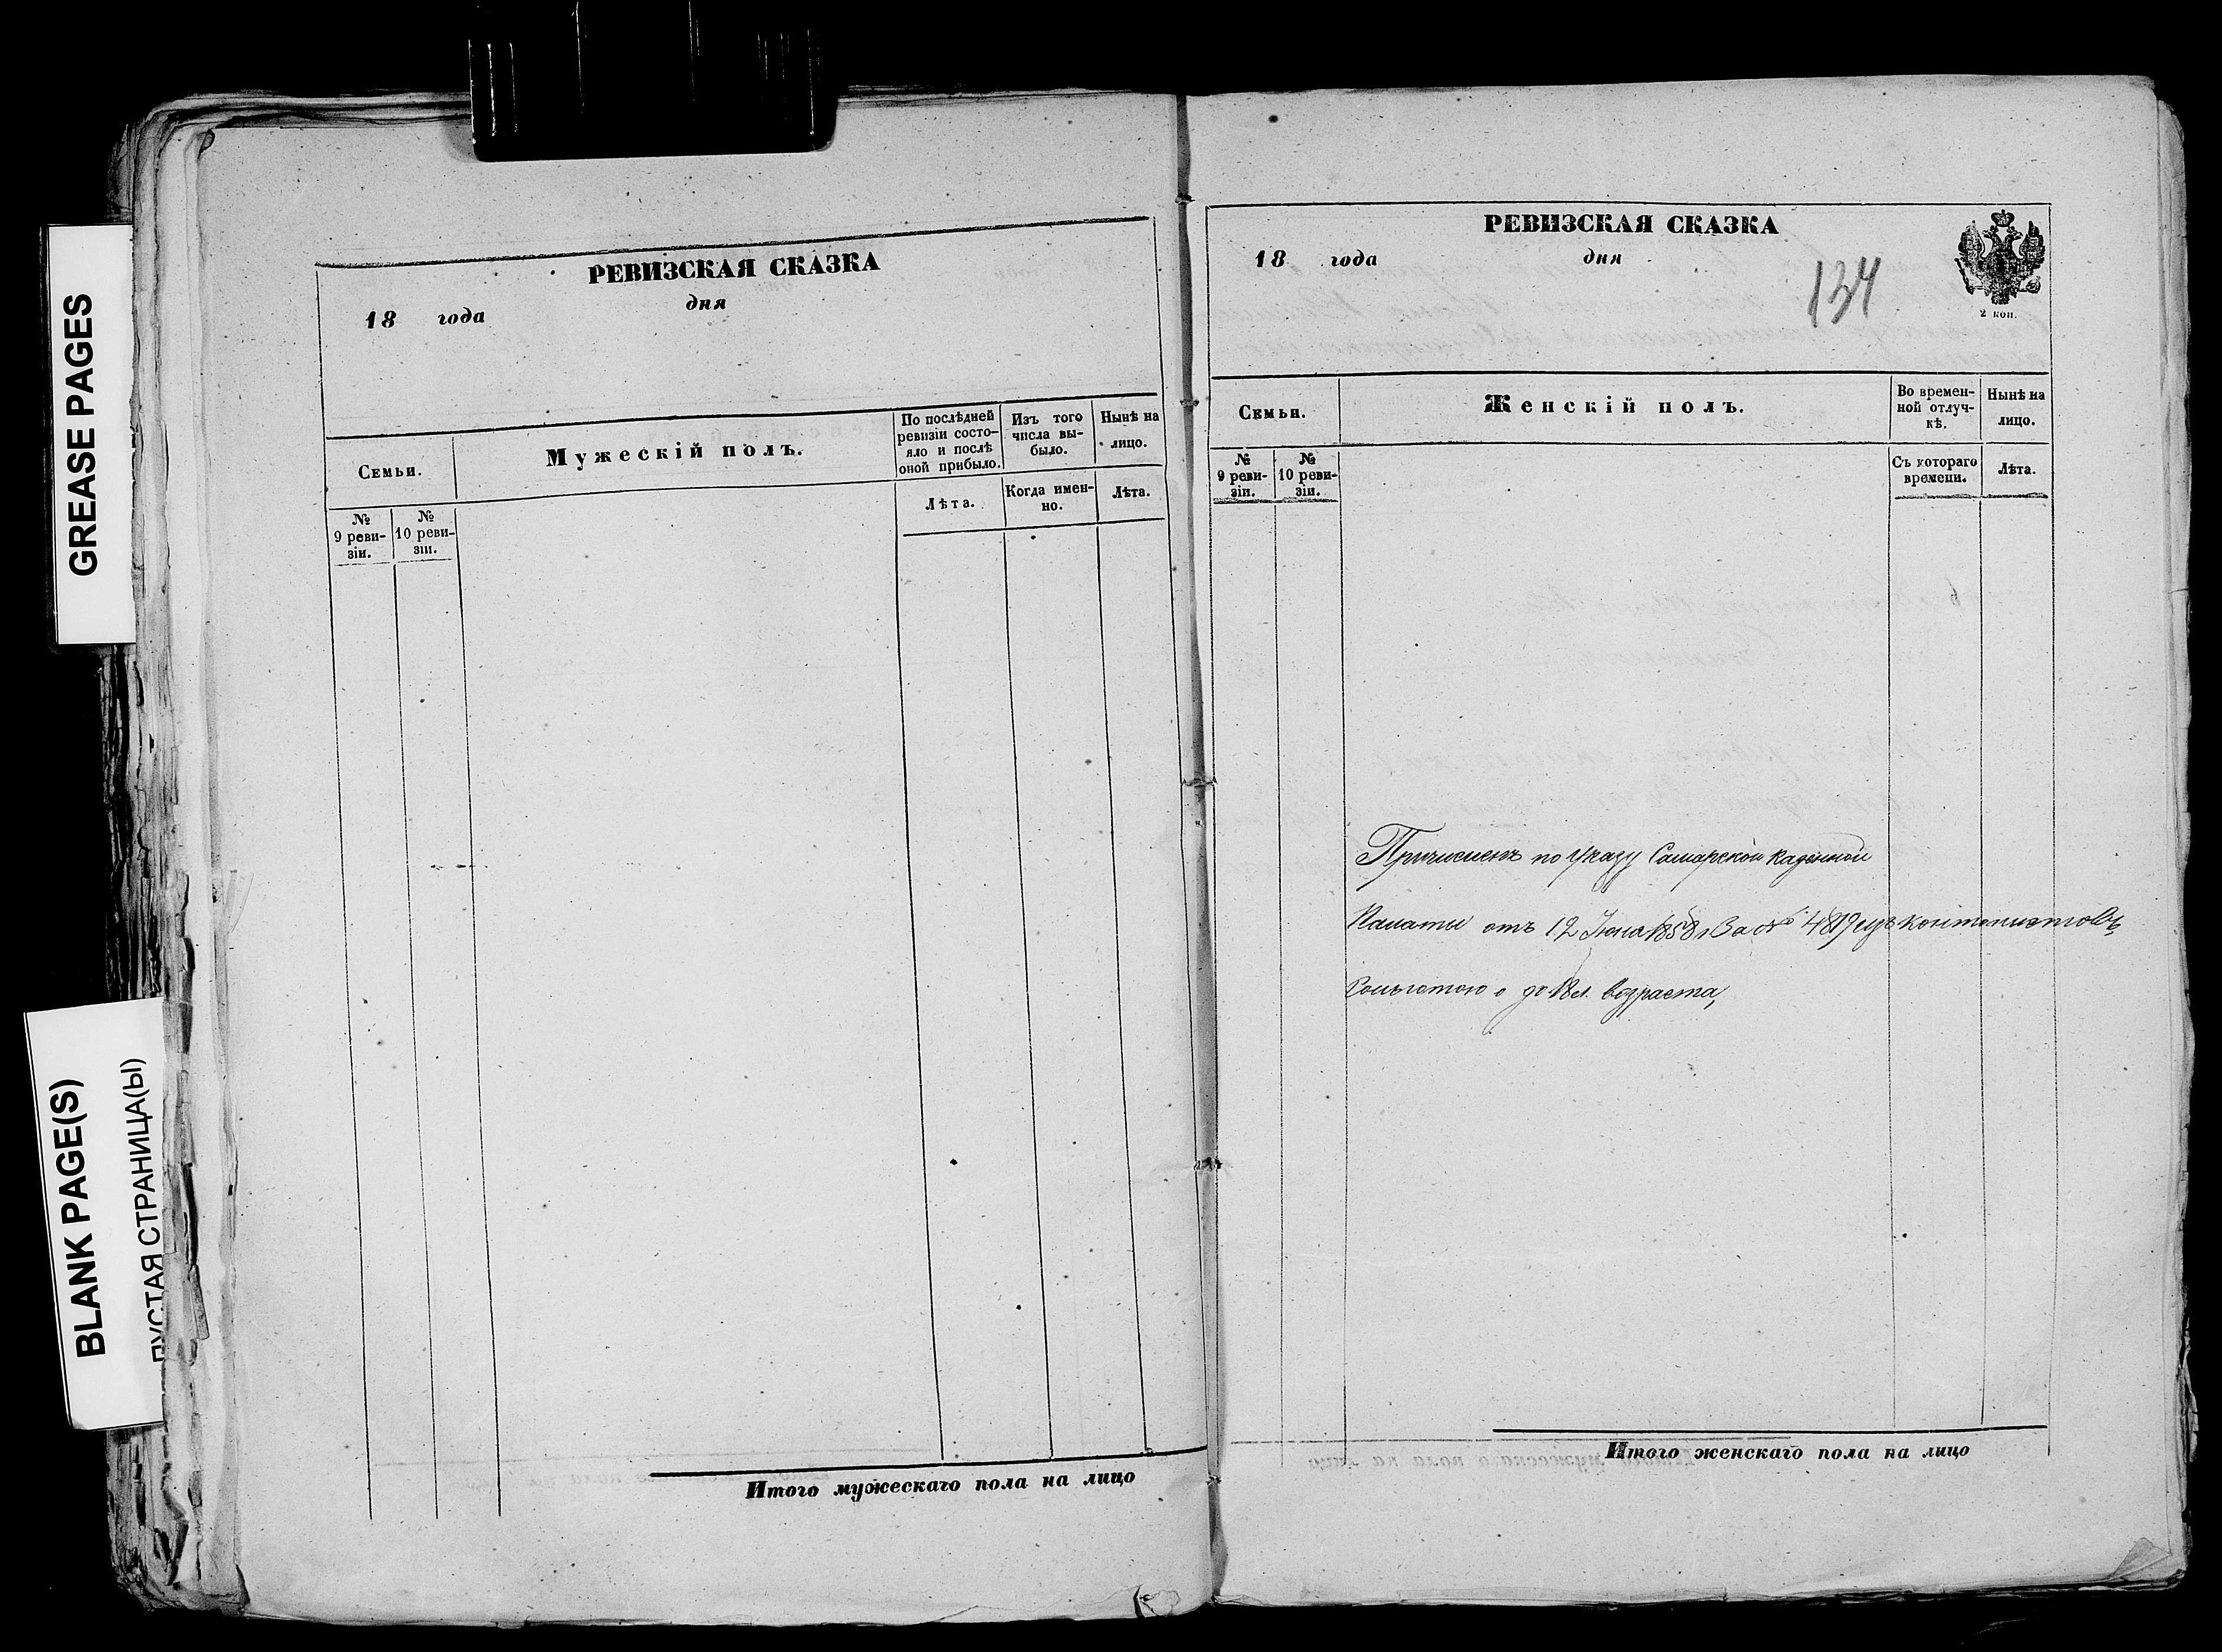 GREASE PAGES
BLANK PAGE(S)
ПУСТАЯ СТРАНИЦА(Ы)
РЕВИЗСКАЯ СКАЗКА
18 года дня
Семьи.
Мужескій полъ.
По послѣдней ревизіи состо-
яло и послѣ оной прибыло.
Изъ того числа вы-
было.
Нынѣ на лицо.
№ 9 реви-
зіи.
№ 10 реви-
зіи.
Лѣта.
Когда имен-
но.
Лѣта.
Итого мужескаго пола на лицо
РЕВИЗСКАЯ СКАЗКА
18 года дня
134
2 коп.
Семьи.
Женскій полъ.
Во времен-
ной отлуч-
кѣ.
Нынѣ на лицо.
№ 9 реви-
зіи.
№ 10 реви-
зіи.
Съ котораго времени.
Лѣта.
Причисленъ по указу Самарской казенной
Палаты отъ 12 Іюна 1858 За № 4819 изъ кантонистовъ
Сольготою до 18 л. возраста,
Итого женскаго пола на лицо